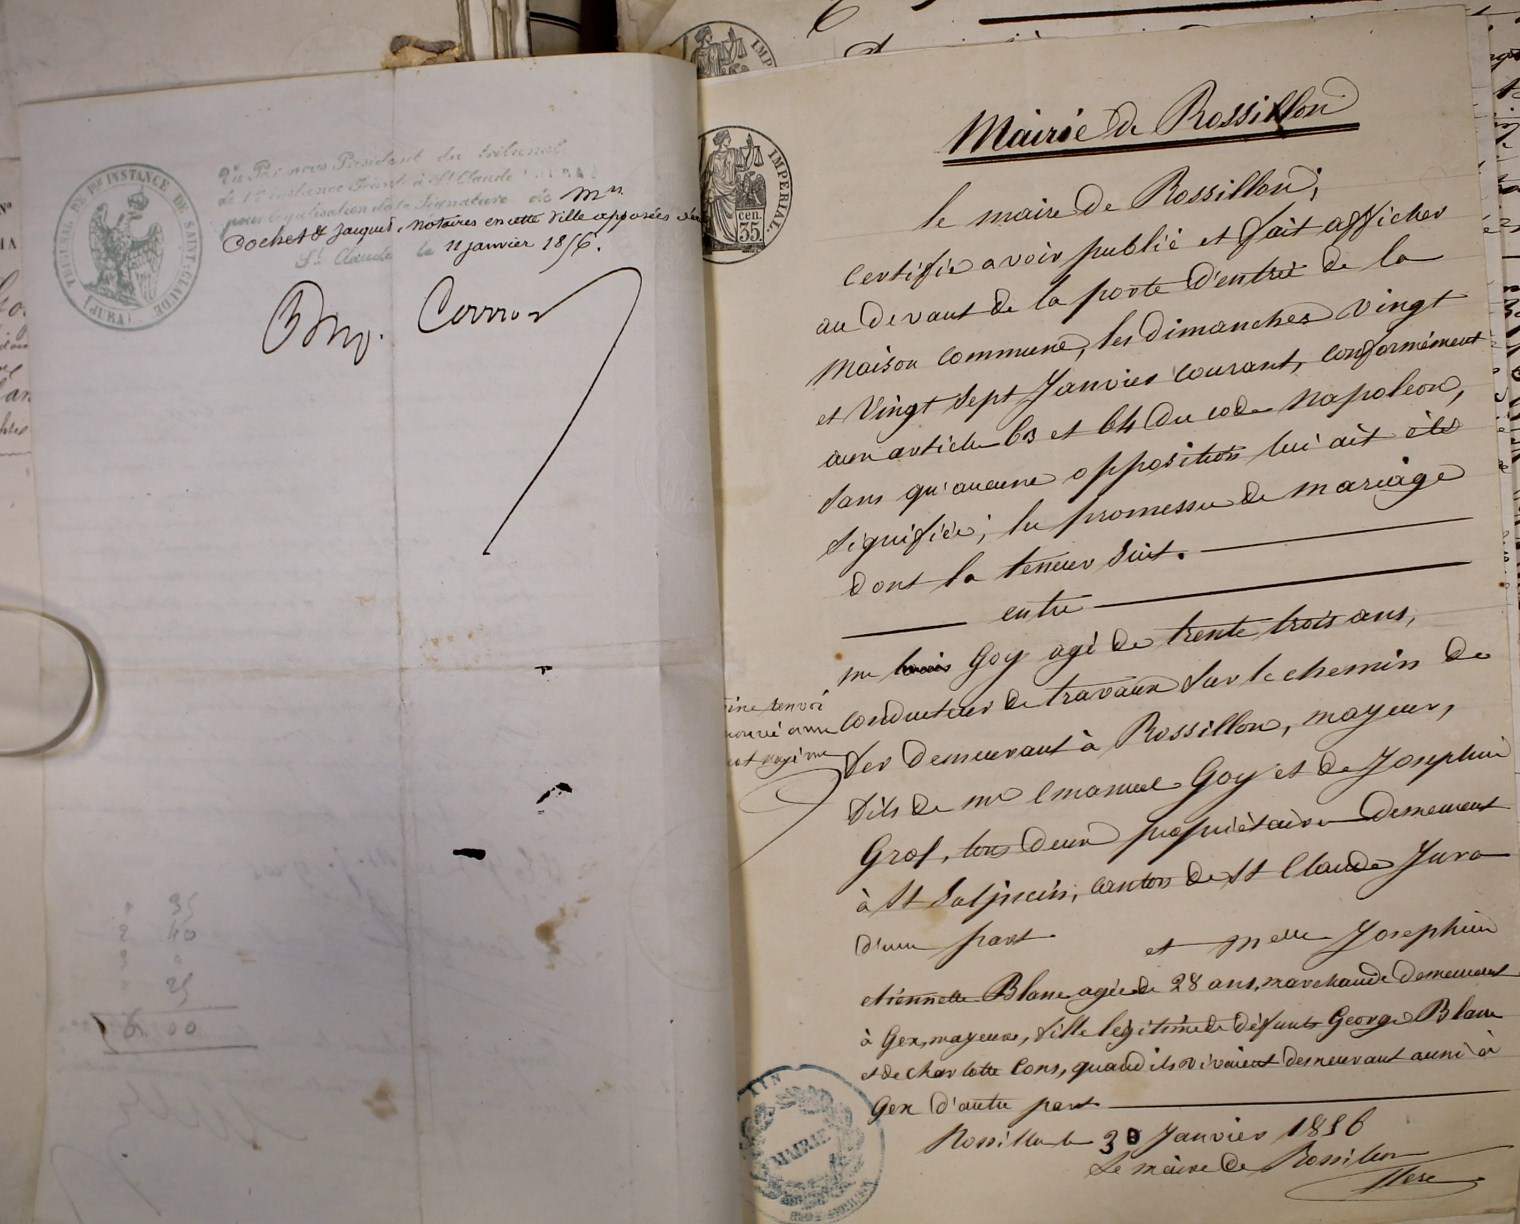 TRIBUNAL DE 1re INSTANCE DE SAINT-CLAUDE
(JURA)
Président du tribunal
de 1re instance à St Claude
pour légalisation de la signature de Mrs
Cochet & Jacquet, notaires en cette Ville apposées
St Claude le 11 janvier 1856.
IMPERIAL
cen.
35
Mairie de Rossillon
le maire de Rossillon,
Certifie avoir publié et fait afficher
au devant de la porte d'entrée de la
Maison commune, les dimanches vingt
et Vingt sept Janvier courant, conformément
aux article 63 et 64 du code Napoléon,
sans qu'aucune opposition lui ait été
signifiée, la promesse de mariage
dont la teneur suit.
entre
mr Goy agé de trente trois ans,
Conducteur de travaux sur le chemin de
fer demeurant à Rossillon, mayeur,
fils de mr Emanuel Goy et de Josephine
Grof, tous deux propriétaire demeurant
à St Sulpicin, canton de St Claude Jura
d'une part
et Melle Josephine
etiennette Blanc agée de 28 ans, marchande demeurant
à Gex, mayeure, fille légitime de défunts George Blanc
et de charlotte Cons, quand ils vivaient demeurant aussi à
Gex d'autre part
Rossillon le 30 Janvier 1856
Le maire de Rossillon
renvoi
AIN
MAIRIE
35
2 40
3 0
25
6 00